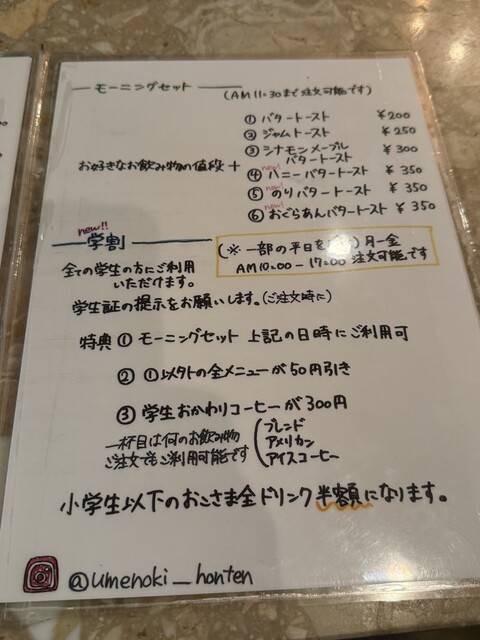 モーニングセット (AM11:30まで注文可能です)
お好きなお飲み物の値段 +
① バタートースト ¥200
② ジャムトースト ¥250
③ シナモンメープル ¥300
バタートースト
new!
④ ハニーバタートースト ¥350
new!
⑤ のりバタートースト ¥350
new!
⑥ おぐらあんバタートースト ¥350
new!!
学割
(※一部の平日を く) 月ー金
AM10:00-17:00 注文可能です
全ての学生の方にご利用
いただけます。
学生証の提示をお願いします。(ご注文時に)
特典 ① モーニングセット 上記の日時にご利用可
② ①以外の全メニューが50円引き
③ 学生おかわりコーヒーが300円
一杯目は何のお飲み物
ご注文でもご利用可能です
ブレンド
アメリカン
アイスコーヒー
小学生以下のおこさま全ドリンク半額になります。
@umenoki_honten